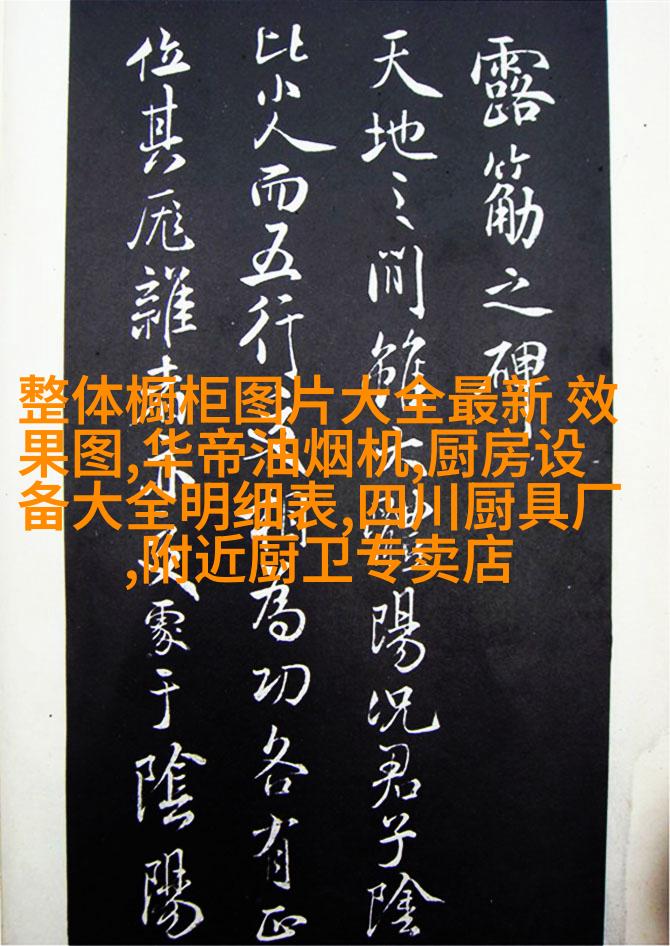 露筋之碑
天地之間雖大陽況君子陰
比小人而五行為功各有正
位其厖雜亦于陰陽
整体橱柜图片大全最新 效
果图,华帝油烟机,厨房设
备大全明细表,四川厨具厂
,附近厨卫专卖店